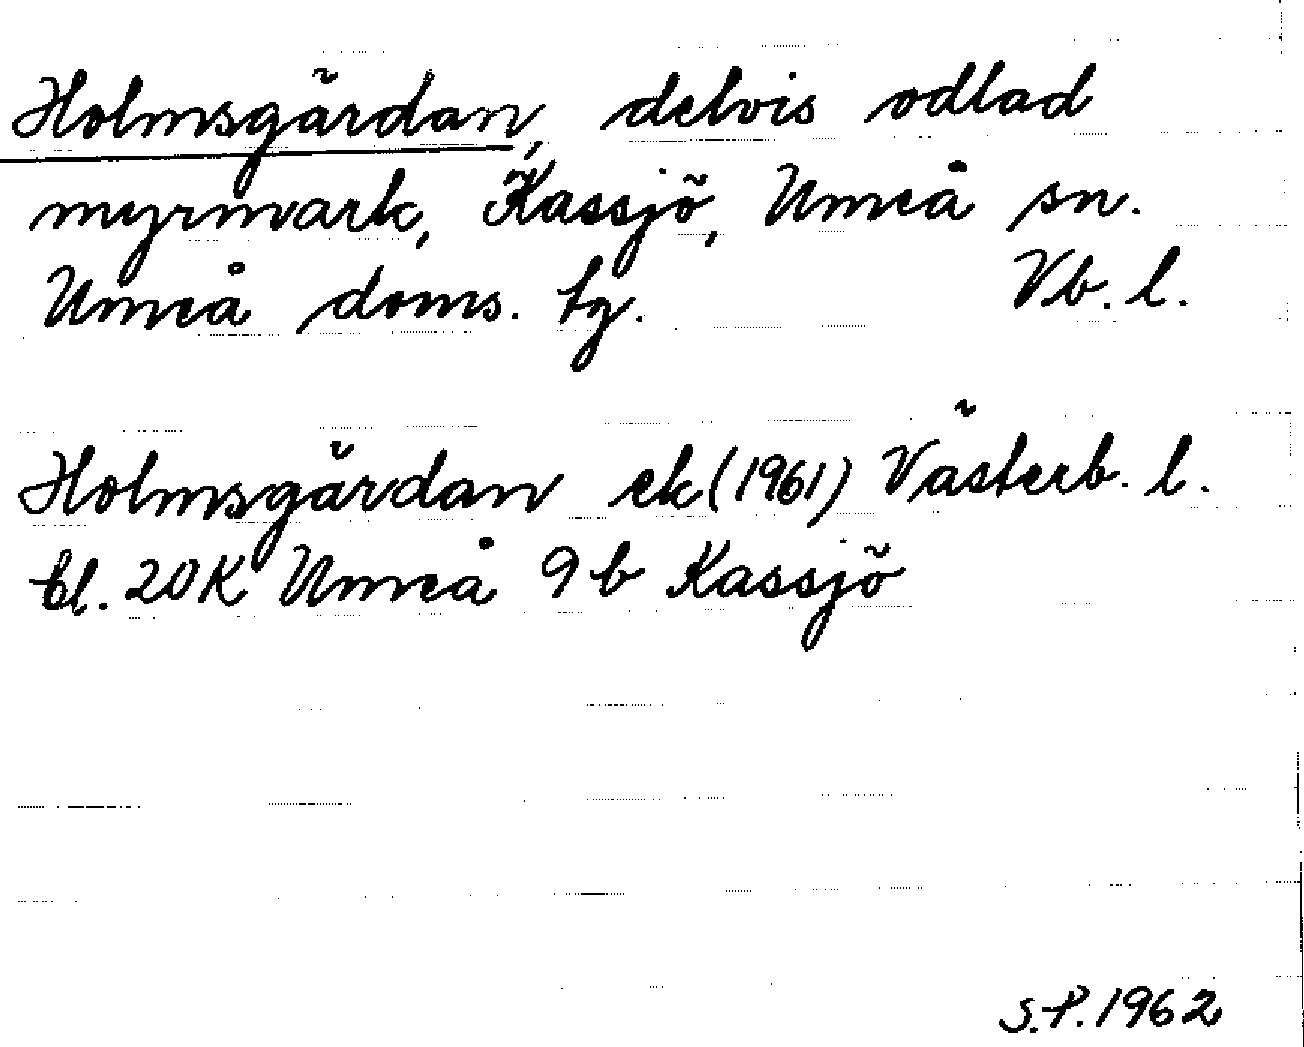 Holmsgärdan, delvis odlad
myrmark, Kassjö, Umeå sn.
Umeå doms. tg. Vb. l.
Holmsgärdan ek (1961) Västerb. l.
bl. 20K Umeå 9 b Kassjö
S.P. 1962